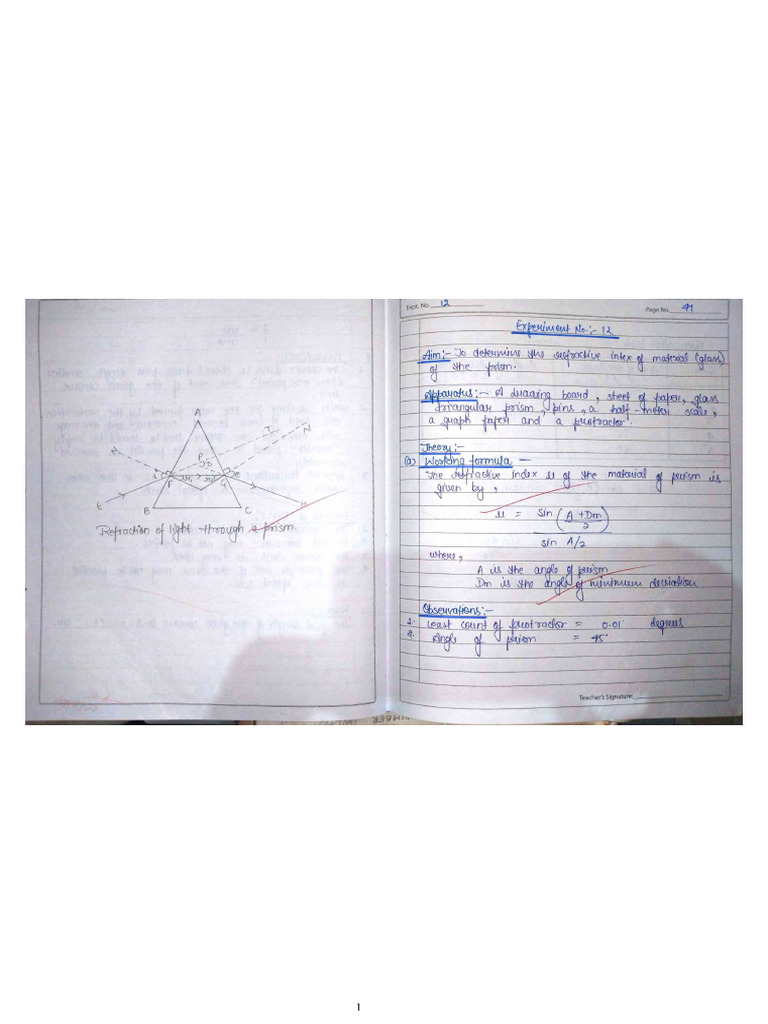 A
T
N
R
P
D
i
e
r1
r2
F
E
H
B
C
Refraction of light through a prism.
Expt. No. 12
Page No. 41
Experiment No:- 12
Aim:- To determine the refractive intex of material (glass)
of the prism.
Apparatus:- A drawing board, sheet of paper, glass
triangular prism, pins, a half-meter scale,
a graph paper and a protractor.
Theory:-
(a) Working formula -
The refractive Index u of the material of prism is
given by,
u = sin (A + Dm / 2)
sin A/2
where,
A is the angle of prism
Dm is the angle of minimum deviation
Observations:-
1. Least count of protractor = 0.01° degrees
2. Angle of prism = 45°
Teacher's Signature:
1